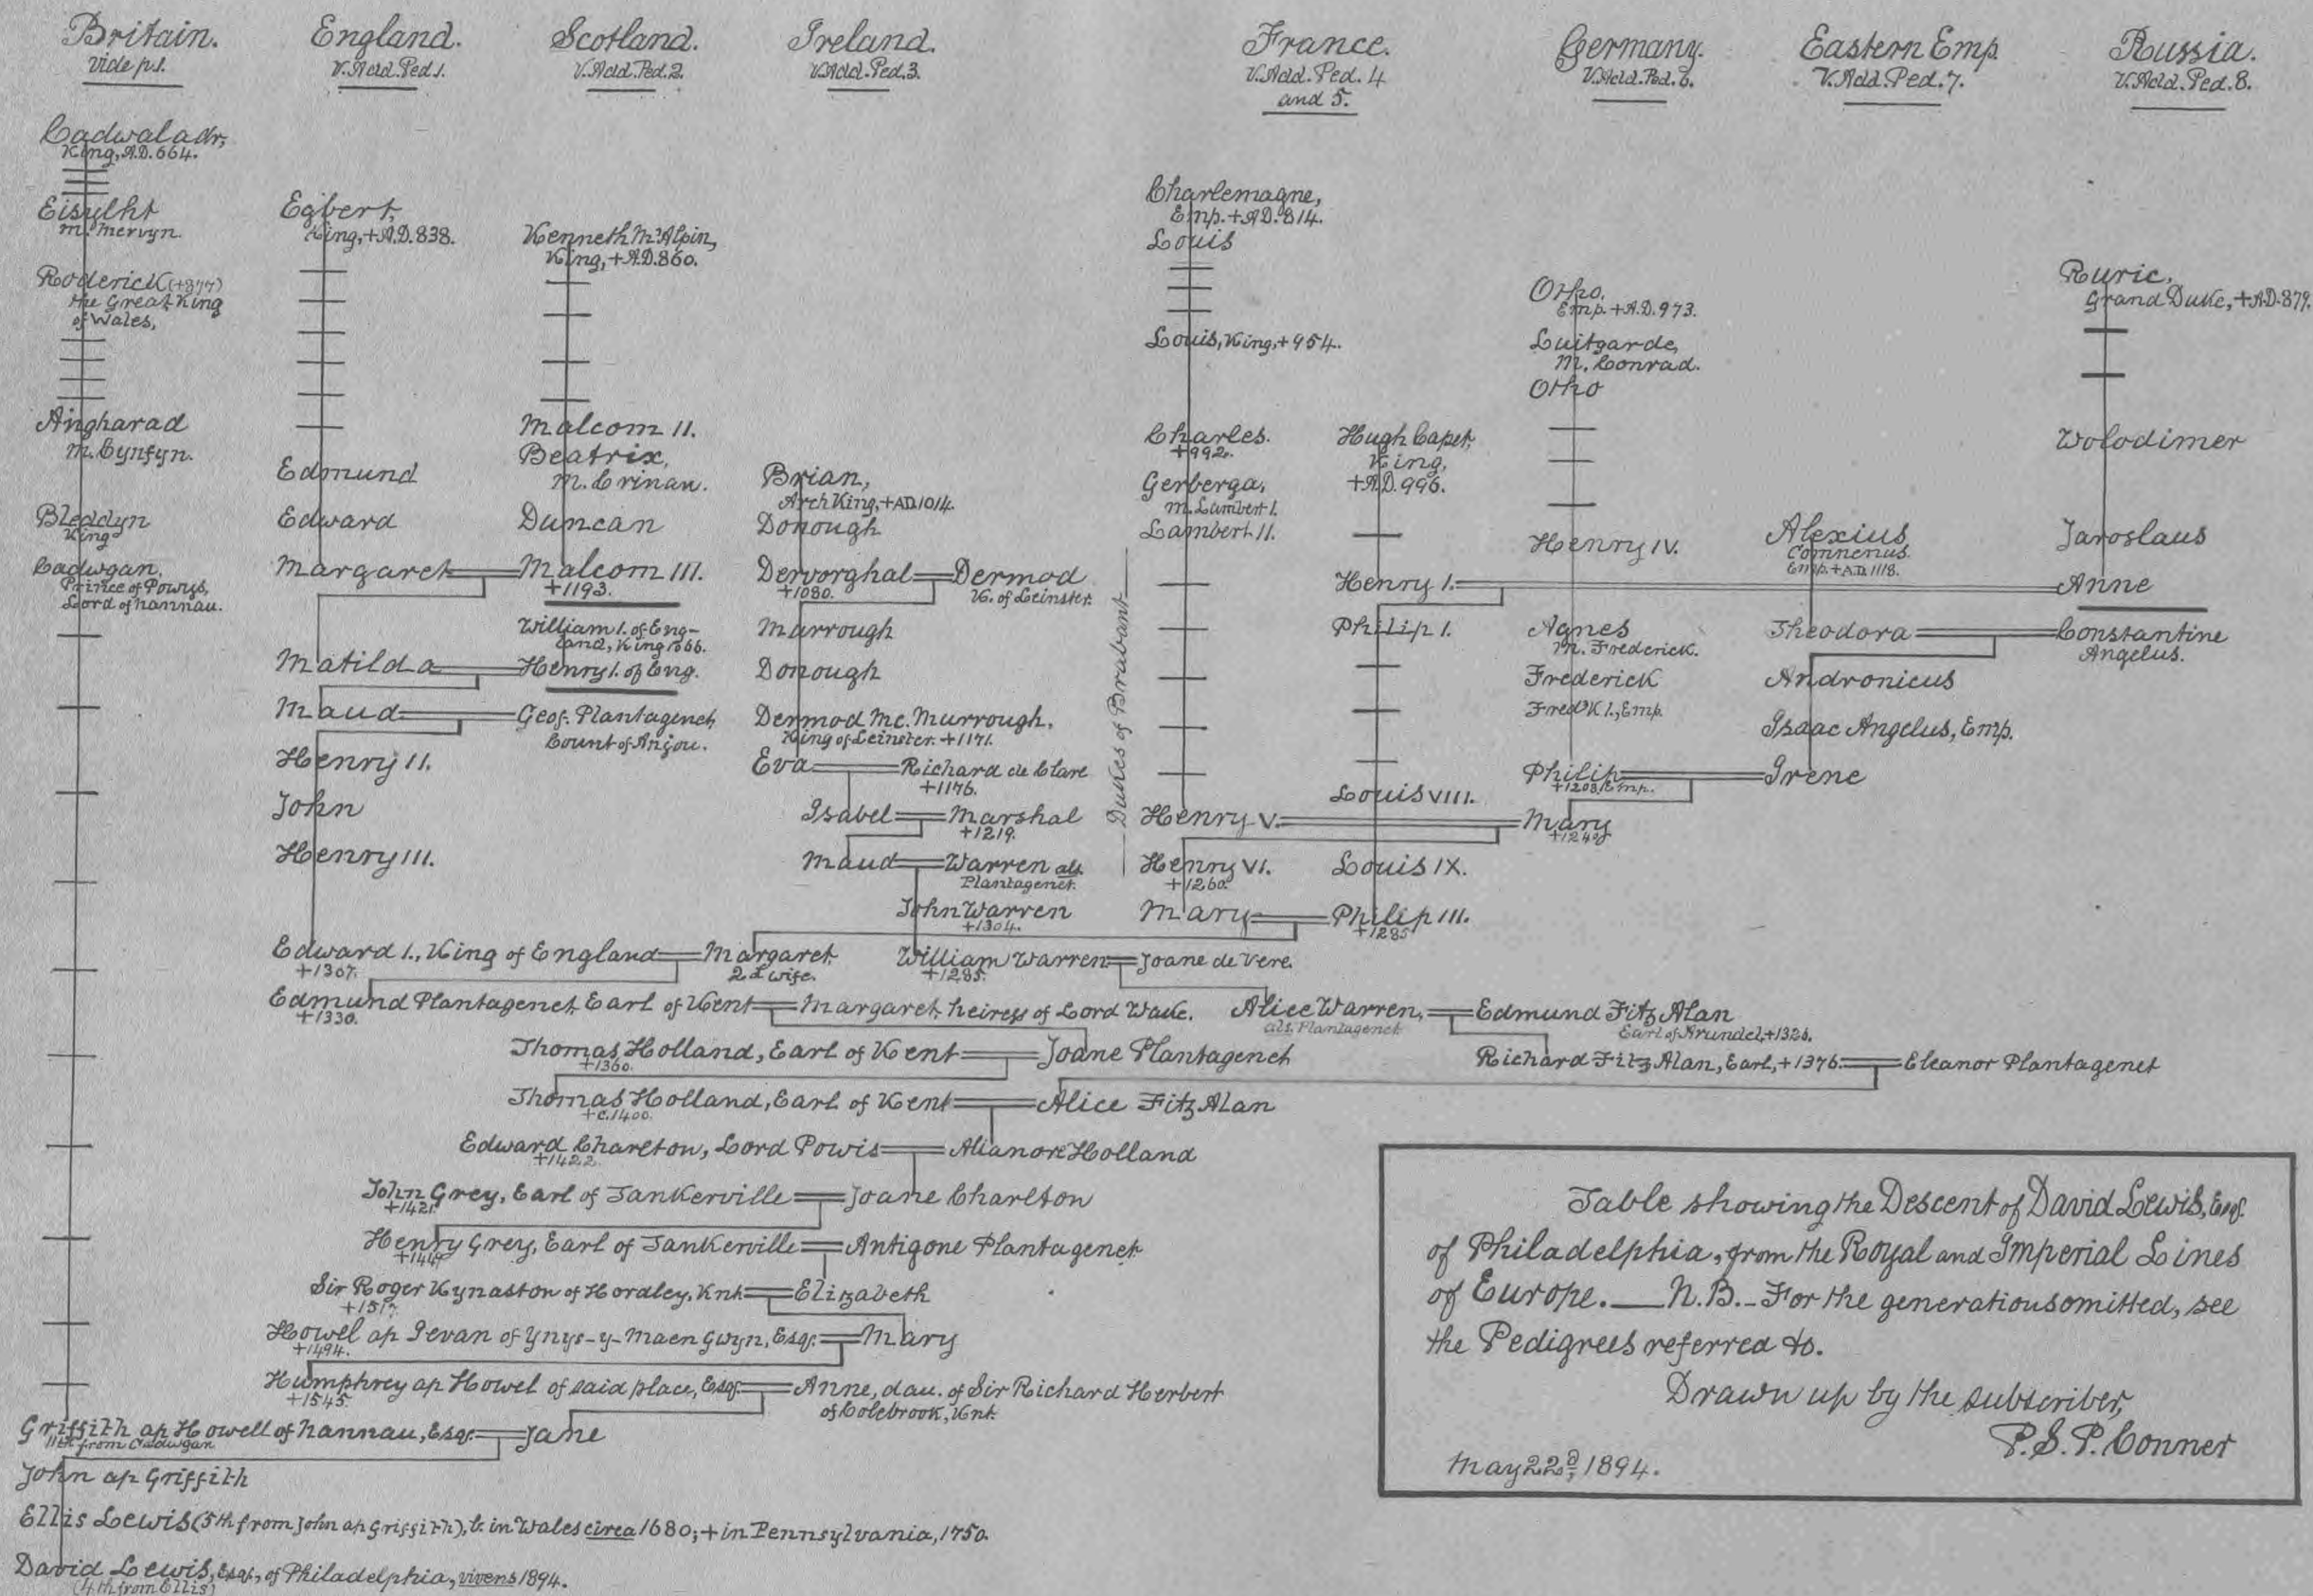 Britain.
vide p.1.
England.
V. Add. Ped. 1.
Scotland.
V. Add. Ped. 2.
Ireland.
V. Add. Ped. 3.
France.
V. Add. Ped. 4
and 5.
Germany.
V. Add. Ped. 6.
Eastern Emp.
V. Add. Ped. 7.
Russia.
V. Add. Ped. 8.
Cadwaladr,
King, A.D. 664.
Eisylht
m. Mervyn.
Roderick (+877)
the Great King
of Wales,
Angharad
m. Cynfyn.
Bleddyn
King
Cadwgan,
Prince of Powys,
Lord of Nannau.
Egbert,
King, + A.D. 838.
Edmund
Edward
Margaret
Matilda
Maud
Henry II.
John
Henry III.
Kenneth McAlpin,
King, + A.D. 860.
Malcom II.
Beatrix,
M. Crinan.
Duncan
Malcom III.
+1193.
William I. of Eng-
land, King 1066.
Henry I. of Eng.
Geof. Plantagenet,
Count of Anjou.
Brian,
Arch King, + A.D. 1014.
Donough
Dervorghal
+1080.
Dermod
K. of Leinster.
Murrough
Donough
Dermod Mc. Murrough,
King of Leinster. +1171.
Eva
Richard de Clare
+1176.
Isabel
Marshal
+1219.
Maud
Warren als.
Plantagenet.
John Warren
+1304.
Dukes of Brabant
Charlemagne,
Emp. + A.D. 814.
Louis
Louis, King, + 954.
Charles.
+992.
Gerberga,
m. Lambert I.
Lambert II.
Henry V.
Henry VI.
+1260.
Mary
Hugh Capet,
King,
+ A.D. 996.
Henry I.
Philip I.
Louis VIII.
Louis IX.
Philip III.
+1285
Otho,
Emp. + A.D. 973.
Luitgarde,
M. Conrad.
Otho
Henry IV.
Agnes
m. Frederick.
Frederick
Fred'k I., Emp.
Philip
+1208, Emp.
Mary
+1240
Alexius
Comnenus.
Emp. + A.D. 1118.
Theodora
Andronicus
Isaac Angelus, Emp.
Irene
Ruric,
Grand Duke, + A.D. 879.
Wolodimer
Jaroslaus
Anne
Constantine
Angelus.
Edward I., King of England
+1307.
Margaret,
2d wife.
William Warren
+1285.
Joane de Vere.
Edmund Plantagenet, Earl of Kent
+1330.
Margaret, heiress of Lord Wake.
Alice Warren,
als. Plantagenet
Edmund Fitz Alan
Earl of Arundel, +1326.
Thomas Holland, Earl of Kent
+1360.
Joane Plantagenet
Richard Fitz Alan, Earl, +1376.
Eleanor Plantagenet
Thomas Holland, Earl of Kent
+c. 1400.
Alice Fitz Alan
Edward Charlton, Lord Powis
+1422.
Alianore Holland
John Grey, Earl of Tankerville
+1421.
Joane Charlton
Henry Grey, Earl of Tankerville
Antigone Plantagenet
Sir Roger Kynaston of Hordley, Knt.
+1517.
Elizabeth
Howel ap Jevan of Ynys-y-Maen Gwyn, Esq.
+1494.
Mary
Humphrey ap Howel of said place, Esq.
+1545.
Anne, dau. of Sir Richard Herbert
of Colebrook, Knt.
Griffith ap Howell of Nannau, Esq.
11th from Cadwgan
Jane
John ap Griffith
Ellis Lewis (5th from John ap Griffith), b. in Wales circa 1680; + in Pennsylvania, 1750.
David Lewis, Esq., of Philadelphia, vivens 1894.
(4th from Ellis)
Table showing the Descent of David Lewis, Esq.
of Philadelphia, from the Royal and Imperial Lines
of Europe. — N.B. - For the generations omitted, see
the Pedigrees referred to.
Drawn up by the subscriber,
P. S. P. Conner
May 22d, 1894.